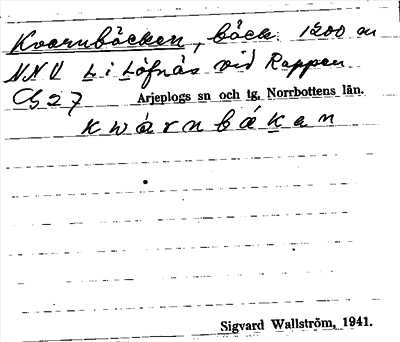 Kvarnbäcken, bäck 1200 m
NNV L i Löfnäs vid Rappen
Cb 27 Arjeplogs sn och tg, Norrbottens län.
k w á r n b á k a n
Sigvard Wallström, 1941.